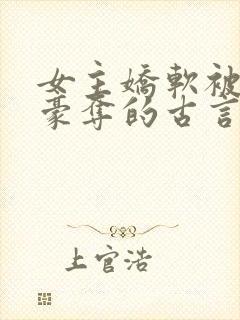 女主嬌軟被
豪奪的古言
上官浩